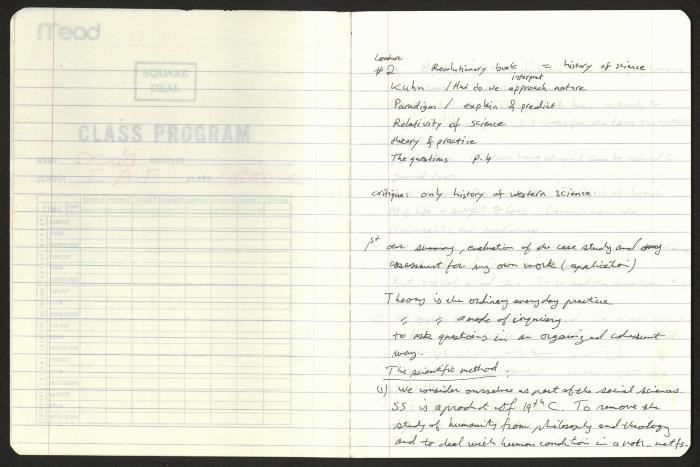 Mead
SQUARE
DEAL
CLASS PROGRAM
NAME
SCHOOL I.A.F CLASS
Lecture
#2 Revolutionary book = history of science
interpret
Kuhn / How do we approach nature
Paradigm / explain & predict
Relativity of science
theory & practice
The questions p.4
critique: only history of western science
1st one summary, evaluation of the case study and
assessment for my own work (application)
Theory is the ordinary everyday practice
" " a mode of inquiry
to ask questions in an organized coherent
way.
The scientific method.
(1) We consider ourselves as part of the social sciences.
SS is a product of 19th C. To remove the
study of humanity from philosophy and theology
and to deal with human condition in a non-metfs.